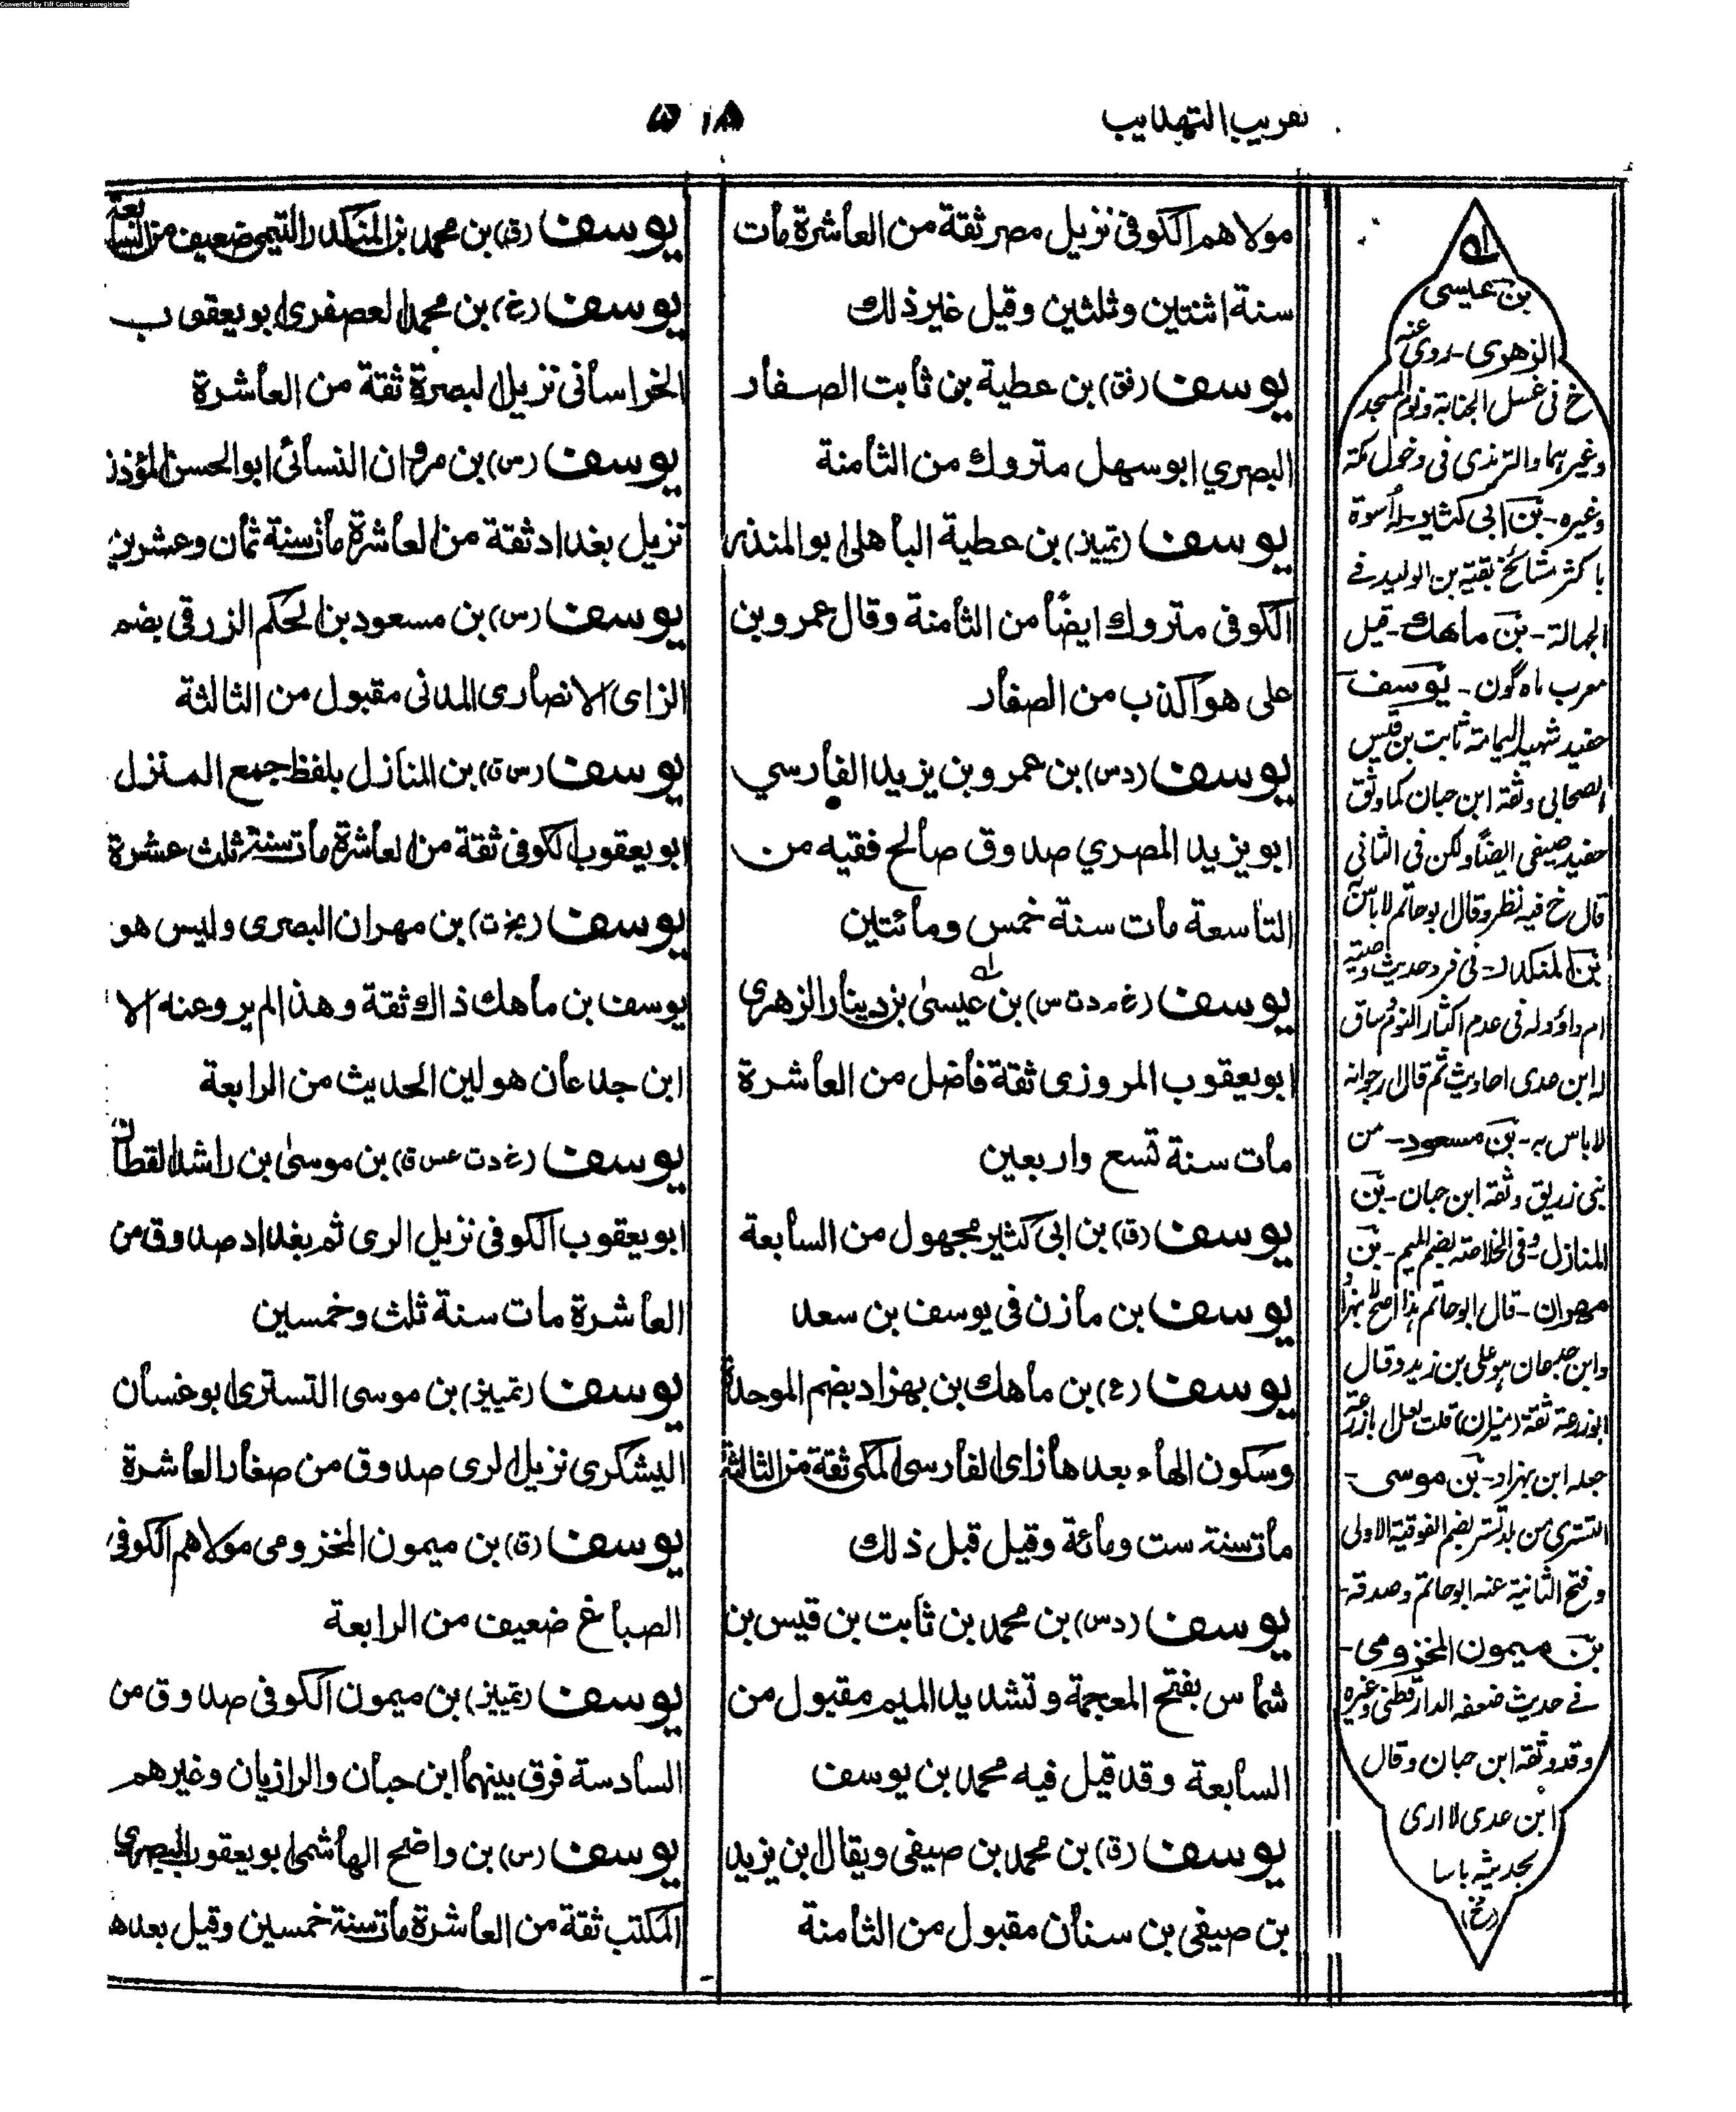 Converted by Tiff Combine - unregistered
تقريب التهذيب
٥١٨
مولاهم الكوفى نزيل مصر ثقة من العاشرة مات
سنة اثنتين وثلثين وقيل غير ذلك
يوسف (فق) بن عطية بن ثابت الصفار
البصري ابو سهل متروك من الثامنة
يوسف (تمييز) بن عطية الباهلى ابو المنذر
الكوفى متروك ايضًا من الثامنة وقال عمرو بن
على هو اكذب من الصفار
يوسف (دس) بن عمرو بن يزيد الفارسي
ابو يزيد المصري صدوق صالح فقيه من
التاسعة مات سنة خمس ومائتين
يوسف (خ م د ت س) بن عيسىٰ بن دينار الزهري
ابو يعقوب المروزى ثقة فاضل من العاشرة
مات سنة تسع واربعين
يوسف (ق) بن ابى كثير مجهول من السابعة
يوسف بن مازن فى يوسف بن سعد
يوسف (ع) بن ماهك بن بهزاد بضم الموحدة
وسكون الهاء بعدها زاى الفارسى المكى ثقة من الثالثة
مات سنة ست ومائة وقيل قبل ذلك
يوسف (دس) بن محمد بن ثابت بن قيس بن
شماس بفتح المعجمة وتشديد الميم مقبول من
السابعة وقد قيل فيه محمد بن يوسف
يوسف (ق) بن محمد بن صيفى ويقال ابن يزيد
بن صيفى بن سنان مقبول من الثامنة
يوسف (ق) بن محمد بن المنكدر التيمى ضعيف من السابعة
يوسف (خ) بن محمد العصفرى ابو يعقوب
الخراسانى نزيل البصرة ثقة من العاشرة
يوسف (س) بن مروان النسائى ابو الحسن المؤذن
نزيل بغداد ثقة من العاشرة مات سنة ثمان وعشرين
يوسف (س) بن مسعود بن الحكم الزرقى بضم
الزاى الانصارى المدنى مقبول من الثالثة
يوسف (س ق) بن المنازل بلفظ جمع المنزل
ابو يعقوب الكوفى ثقة من العاشرة مات سنة ثلث عشرة
يوسف (بخ ت) بن مهران البصرى وليس هو
يوسف بن ماهك ذاك ثقة وهذا لم يرو عنه الا
ابن جدعان هو لين الحديث من الرابعة
يوسف (خ د ت عس ق) بن موسىٰ بن راشد القطان
ابو يعقوب الكوفى نزيل الرى ثم بغداد صدوق من
العاشرة مات سنة ثلث وخمسين
يوسف (تمييز) بن موسى التسترى ابو غسان
اليشكرى نزيل الرى صدوق من صغار العاشرة
يوسف (ق) بن ميمون المخزومى مولاهم الكوفى
الصباغ ضعيف من الرابعة
يوسف (تمييز) بن ميمون الكوفى صدوق من
السادسة فرق بينهما ابن حبان والرازيان وغيرهم
يوسف (س) بن واضح الهاشمى ابو يعقوب البصري
المكتب ثقة من العاشرة مات سنة خمسين وقيل بعدها
له
بن عيسى
الزهرى - روى عنه
خ فى غسل الجنابة ونوم المسجد
وغيرهما والترمذى فى دخول مكة
وغيره - بن ابى كثير - له اسوة
باكثر مشائخ بقية بن الوليد فے
الجهالة - بن ماهك - قيل
معرب ماه گون - يوسف
حفيد شهيد اليمامة ثابت بن قيس
الصحابى وثقه ابن حبان كما وثق
حفيد صيفى ايضًا ولكن فى الثانى
قال خ فيه نظر وقال ابو حاتم لا باس به
بن المنكدر - فى فرد حديث
ام داؤد وله فى عدم اكثار النوم ساق
له ابن عدى احاديث ثم قال ارجو انه
لا باس به - بن مسعود - من
بنى زريق وثقه ابن حبان - بن
المنازل - وفى الخلاصة بضم الميم - بن
مهران - قال ابو حاتم
وابن جدعان هو على بن زيد وقال
ابو زرعة ثقة (ميزان) قلت لعل ابا زرعة
جعله ابن بهزاد - بن موسى -
التسترى من بلد تستر بضم الفوقية الاولى
وفتح الثانية عنه ابو حاتم وصدقه -
بن ميمون المخزومى -
فے حديث ضعفه الدارقطنى وغيره
وقد وثقه ابن حبان وقال
ابن عدى لا ارى
بحديثه باسا